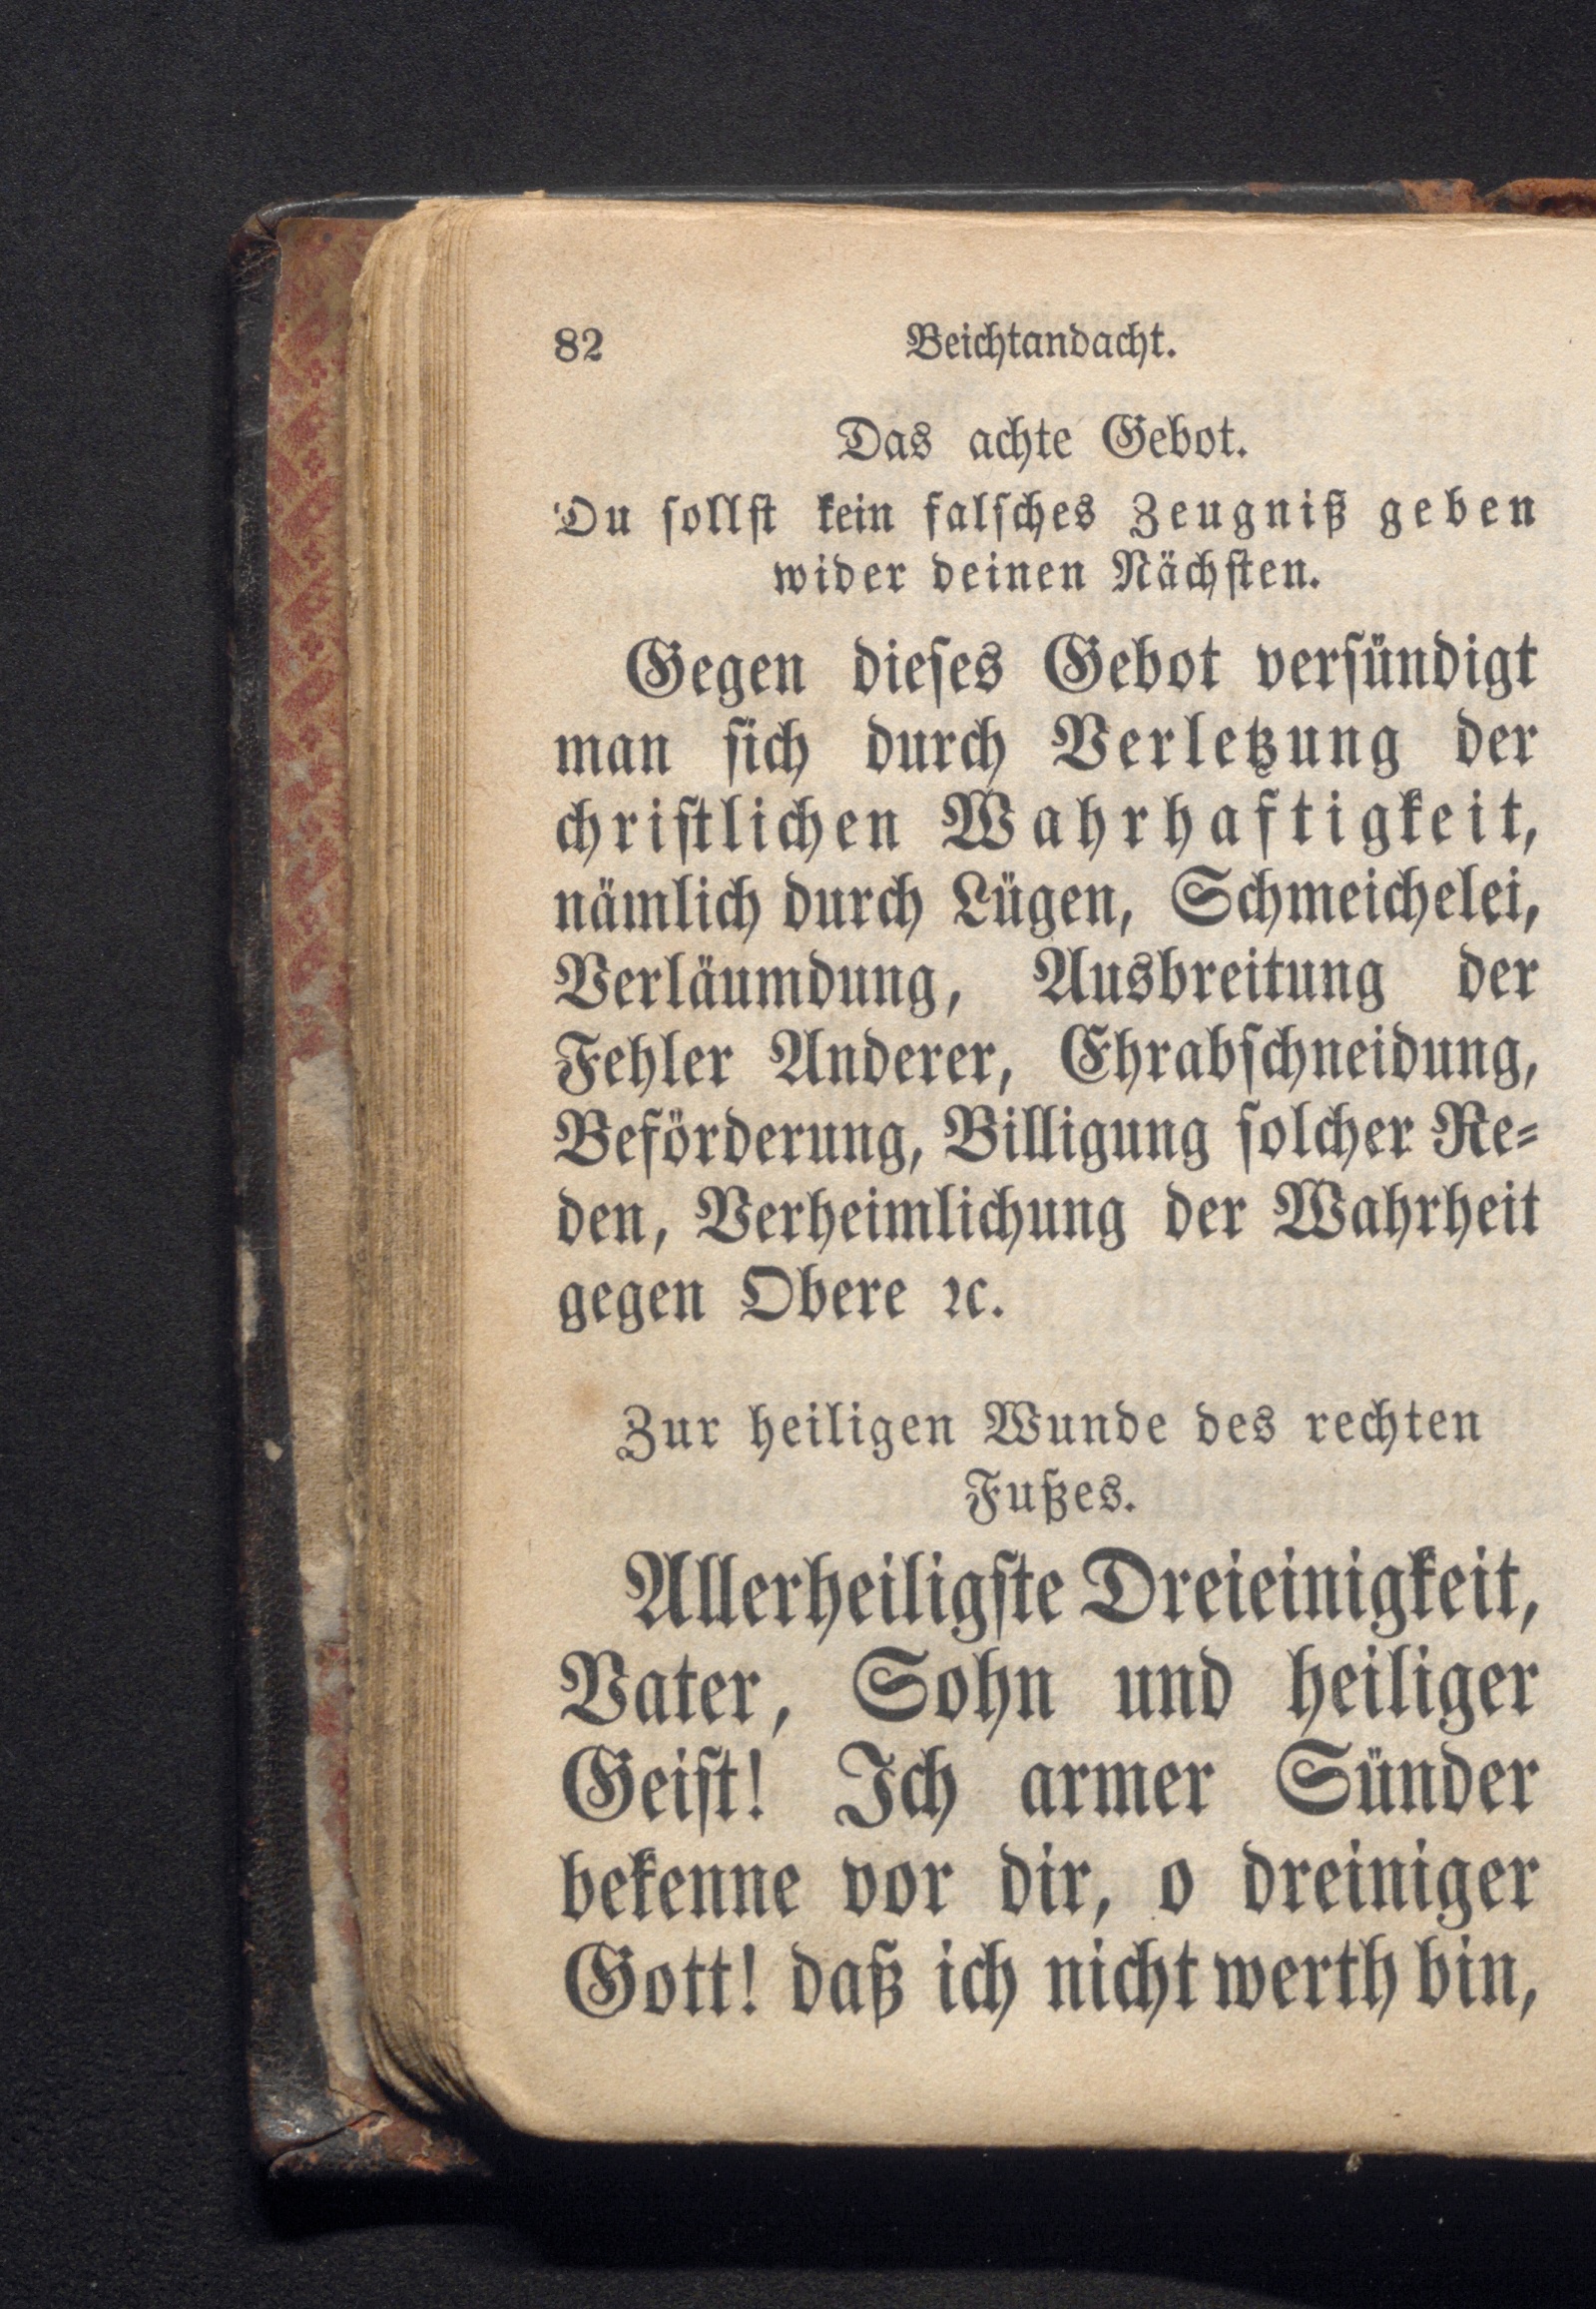 82 Beichtandacht.
Das achte Gebot.
Du ſollſt kein falſches Zeugniß geben
wider deinen Nächſten.
Gegen dieſes Gebot verſündigt
man ſich durch Verletzung der
chriſtlichen Wahrhaftigkeit,
nämlich durch Lügen, Schmeichelei,
Verläumdung, Ausbreitung der
Fehler Anderer, Ehrabſchneidung,
Beförderung, Billigung ſolcher Re⸗
den, Verheimlichung der Wahrheit
gegen Obere ꝛc.
Zur heiligen Wunde des rechten
Fußes.
Allerheiligſte Dreieinigkeit,
Vater, Sohn und heiliger
Geiſt! Ich armer Sünder
bekenne vor dir, o dreiniger
Gott! daß ich nicht werth bin,